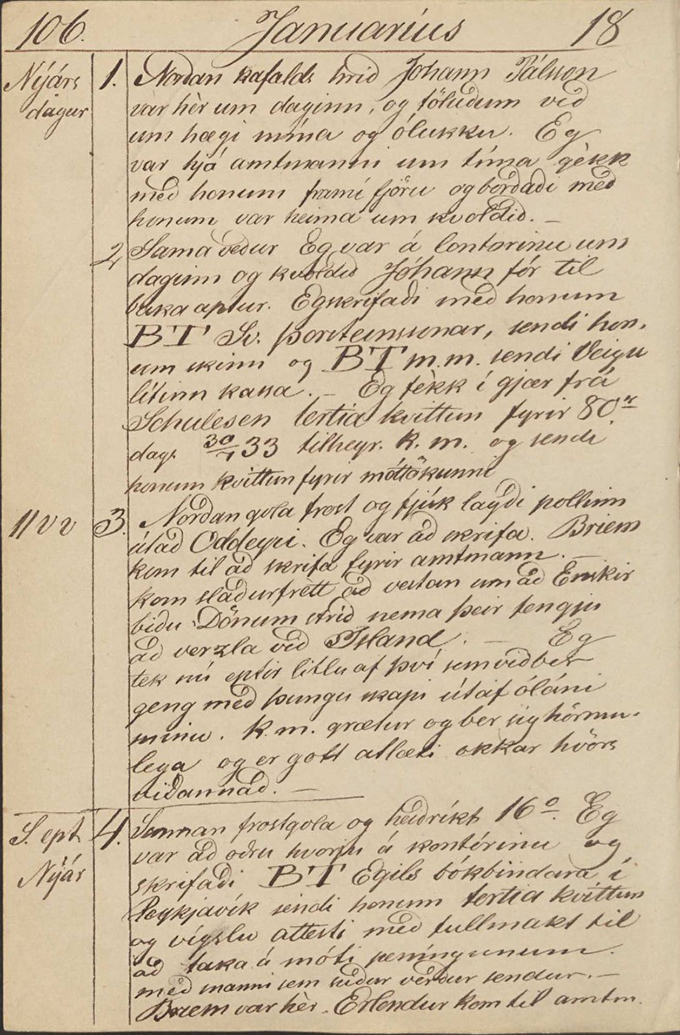 106. Januarius 18
Nýárs dagur 1. Nordan kafalds hrid Jóhann Pálsson
var hèr um daginn, og töludum vid
um hagi mína og ólukku. Eg
var hjá amtmanni um tíma gèkk
med honum framí fjöru og bordadi med
honum var heima um kvöldid. —
2, Sama vedur Eg var á contorinu um
daginn og kvöldid Jóhann fór til
baka aptur. Eg skrifadi med honum
BT Sv. Þorsteinssonar, sendi hon,
um skinn og BT m.m. sendi Veigu
lítinn kassa. — Eg fèkk í gjær frá
Schulesen tertia kvittun fyrir 80 rr
dags 30/7 33 tilheyr. K. m. og sendi
honum kvittun fyrir móttökunni
11 v v 3. Nordan gola frost og fjúk lagdi pollinn
útad Oddeyri. Eg var ad skrifa. Briem
kom til ad skrifa fyrir amtmann. —
kom sladurfrett ad vestan um ad Enskir
bidu Dönum strid nema þeir fengju
ad verzla vid Island. — Eg
tek nú eptir litlu af því sem vidber
geng med þungu skapi útaf óláni
mínu. K. m. grætur og ber sig hörmu,
lega og er gott atlæti okkar hvörs
vidannad. —
S. ept Nýár 4. Sunnan frostgola og heidríkt 16°. Eg
var ad ödru hvörju á kontórinu og
skrifadi BT Egils bókbindara í
Reykjavík sendi honum tertia kvittun
og vígslu attesti med fullmakt til
ad taka á móti peníngunum
med manni sem sudur verdur sendur. —
Briem var hèr. Erlendur kom til amtm.